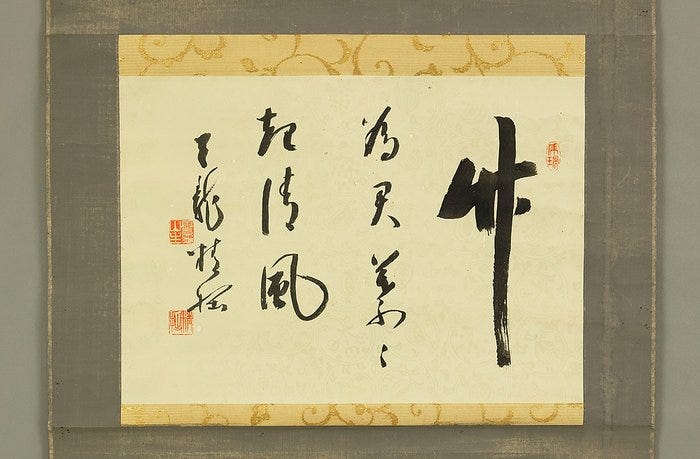 竹
為君葉々
起清風
天龍精拙